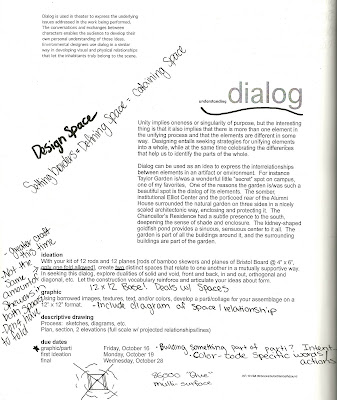 Dialog is used in theater to express the underlying
issues addressed in the work being performed.
The conversations and exchanges between
characters enables the audience to develop their
own personal understanding of those ideas.
Environmental designers use dialog in a similar
way in developing visual and physical relationships
that let the inhabitants truly belong to the scene.
Design Space
Solving Spaces = Defining Space = Containing Space
understanding dialog
Unity implies oneness or singularity of purpose, but the interesting
thing is that it also implies that there is more than one element in
the unifying process and that the elements are different in some
way. Designing entails seeking strategies for unifying elements
into a whole, while at the same time celebrating the differences
that help us to identify the parts of the whole.
Dialog can be used as an idea to express the interrelationships
between elements in an artifact or environment. For instance
Taylor Garden is/was a wonderful little "secret" spot on campus,
one of my favorites. One of the reasons the garden is/was such a
beautiful spot is the dialog of its elements. The somber,
institutional Elliot Center and the porticoed rear of the Alumni
House surrounded the natural garden on three sides in a nicely
scaled architectonic way, enclosing and protecting it. The
Chancellor's Residence had a subtle presence to the south,
deepening the sense of shade and enclosure. The kidney-shaped
goldfish pond provided a sinuous, sensuous center to it all. The
garden is part of all the buildings around it, and the surrounding
buildings are part of the garden.
ideation
With your kit of 12 rods and 12 planes [rods of bamboo skewers and planes of Bristol Board @ 4" x 6",
only one fold allowed], create two distinct spaces that relate to one another in a mutually supportive way.
In seeking this dialog, explore dualities of solid and void, front and back, in and out, orthogonal and
diagonal, etc. Let the construction vocabulary reinforce and articulate your ideas about form.
12 x 12 Base. Deals w/ Spaces
graphic
Using borrowed images, textures, text, and/or colors, develop a parti/collage for your assemblage on a
12" x 12" format.
- Include diagram of space/relationship
descriptive drawing
Process: sketches, diagrams, etc.
Plan, section, 2 elevations (full scale w/ projected relationships/lines)
due dates
graphic/parti Friday, October 16
first ideation Monday, October 19
final Wednesday, October 28
- Building something part of parti?
- Color-code specific words/
actions
multi-surface